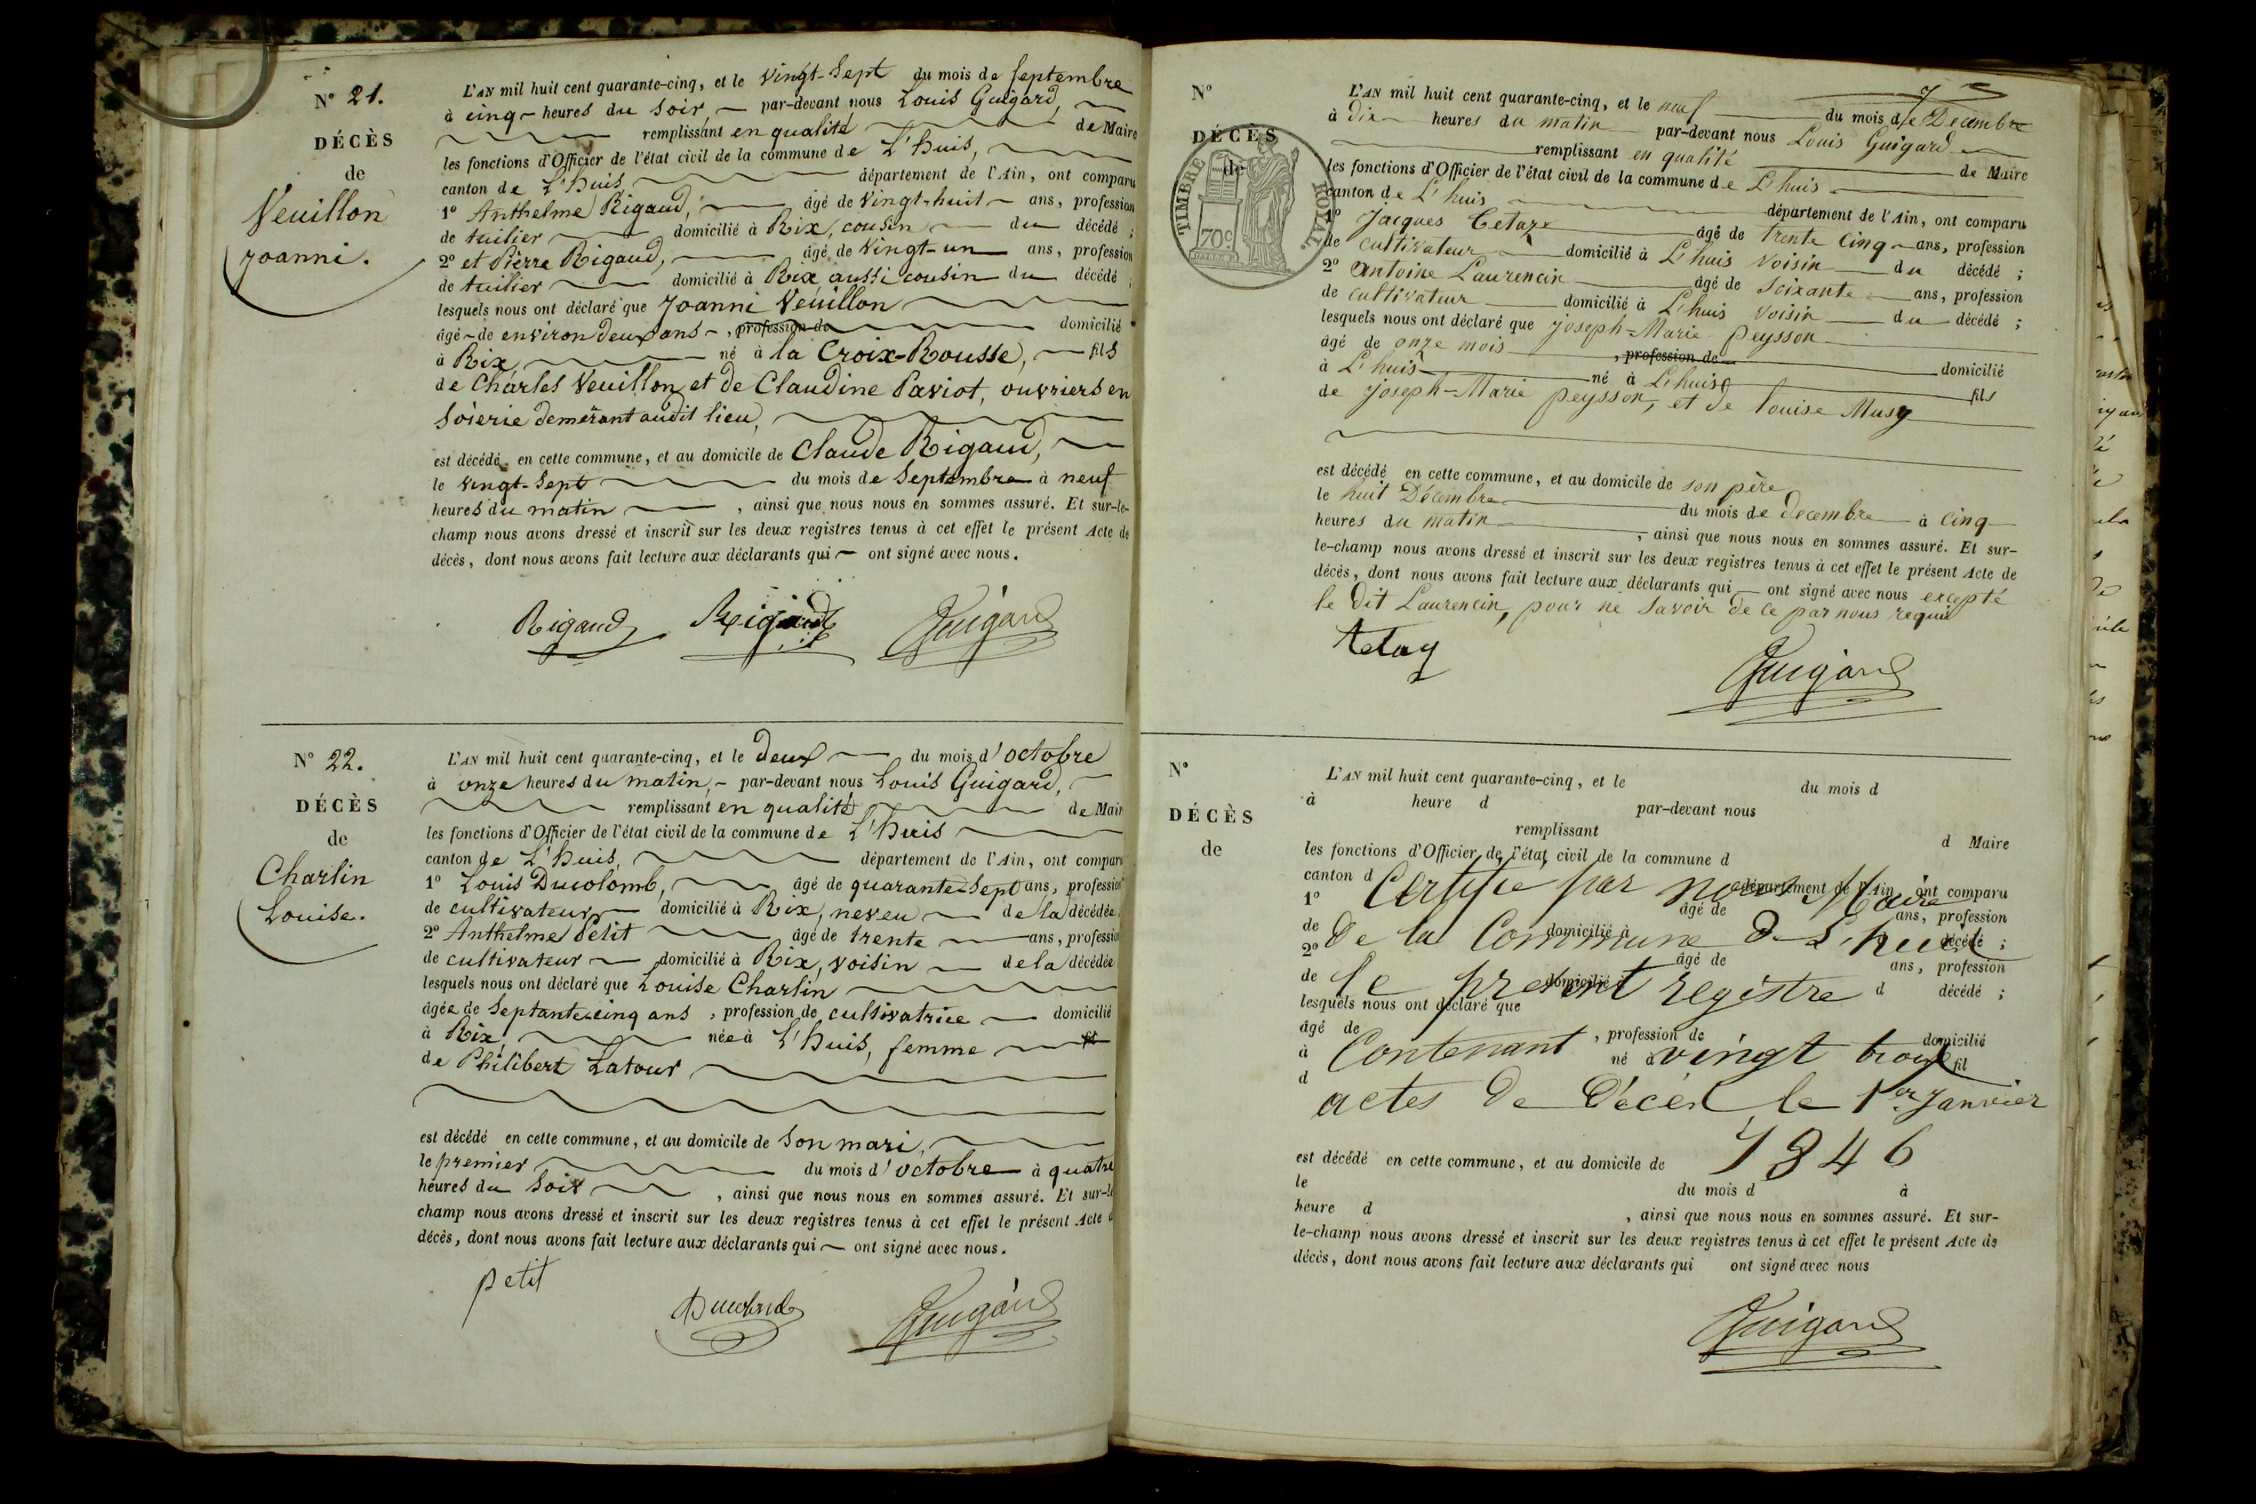 N° 21.
DÉCÈS
de
Veuillon
joanni.
L'AN mil huit cent quarante-cinq, et le vingt-sept du mois de septembre
à cinq heures du soir, par-devant nous Louis Guigard,
remplissant en qualité de Maire
les fonctions d'Officier de l'état civil de la commune de L'huis,
canton de L'huis, département de l'Ain, ont comparu
1° Anthelme Rigaud, âgé de vingt-huit ans, profession
de tuilier domicilié à Rix, cousin du décédé ;
2° et Pierre Rigaud, âgé de vingt-un ans, profession
de tuilier domicilié à Rix, aussi cousin du décédé ;
lesquels nous ont déclaré que joanni Veuillon
âgé de environ deux ans, profession de domicilié
à Rix, né à la Croix-Rousse, fils
de Charles Veuillon, et de Claudine Paviot, ouvriers en
soierie demeurant audit lieu,
est décédé en cette commune, et au domicile de Claude Rigaud,
le vingt-sept du mois de septembre à neuf
heures du matin, ainsi que nous nous en sommes assuré. Et sur-le-
champ nous avons dressé et inscrit sur les deux registres tenus à cet effet le présent Acte de
décès, dont nous avons fait lecture aux déclarants qui ont signé avec nous.
Rigaud Rigaud Guigard
N° 22.
DÉCÈS
de
Charlin
Louise.
L'AN mil huit cent quarante-cinq, et le deux du mois d'octobre
à onze heures du matin, par-devant nous Louis Guigard,
remplissant en qualité de Mair
les fonctions d'Officier de l'état civil de la commune de L'huis
canton de L'huis, département de l'Ain, ont comparu
1° Louis Ducolomb, âgé de quarante-sept ans, profession
de cultivateur domicilié à Rix, neveu de la décédée
2° Anthelme Petit âgé de trente ans, profession
de cultivateur domicilié à Rix, voisin de la décédée
lesquels nous ont déclaré que Louise Charlin
âgée de septante-cinq ans, profession de cultivatrice domicilié
à Rix, née à L'huis, femme fil
de Philibert Latour
est décédé en cette commune, et au domicile de son mari,
le premier du mois d'octobre à quatre
heures du soir, ainsi que nous nous en sommes assuré. Et sur-le
champ nous avons dressé et inscrit sur les deux registres tenus à cet effet le présent Acte d
décès, dont nous avons fait lecture aux déclarants qui ont signé avec nous.
petit Guigard
N°
DÉCÈS
de
TIMBRE ROYAL
70 c
L'AN mil huit cent quarante-cinq, et le neuf du mois de Décembre
à dix heures du matin par-devant nous Louis Guigard
remplissant en qualité de Maire
les fonctions d'Officier de l'état civil de la commune de L'huis
canton de L'huis département de l'Ain, ont comparu
1° Jacques Tetaz âgé de trente cinq ans, profession
de cultivateur domicilié à L'huis voisin du décédé ;
2° antoine Laurencin âgé de soixante ans, profession
de cultivateur domicilié à L'huis voisin du décédé ;
lesquels nous ont déclaré que joseph-Marie peysson
âgé de onze mois, profession de domicilié
à L'huis né à L'huis fils
de joseph-Marie peysson, et de louise Musy
est décédé en cette commune, et au domicile de son père
le huit Décembre du mois de décembre à cinq
heures du matin, ainsi que nous nous en sommes assuré. Et sur-
le-champ nous avons dressé et inscrit sur les deux registres tenus à cet effet le présent Acte de
décès, dont nous avons fait lecture aux déclarants qui ont signé avec nous excepté
le dit Laurencin, pour ne savoir de ce par nous requis
Guigard
N°
DÉCÈS
de
L'AN mil huit cent quarante-cinq, et le du mois d
à heure d par-devant nous
remplissant d Maire
les fonctions d'Officier de l'état civil de la commune d
canton d département de l'Ain, ont comparu
Certifié par nous Maire
1° âgé de ans, profession
de domicilié à décédé ;
de la Commune de L'huis
2° âgé de ans, profession
de domicilié à d décédé ;
le present registre
lesquels nous ont déclaré que
âgé de , profession de domicilié
Contenant vingt trois
à né à fil
d
actes de Décès le 1er Janvier
1846
est décédé en cette commune, et au domicile de
le du mois d à
heure d , ainsi que nous nous en sommes assuré. Et sur-
le-champ nous avons dressé et inscrit sur les deux registres tenus à cet effet le présent Acte de
décès, dont nous avons fait lecture aux déclarants qui ont signé avec nous
Guigard